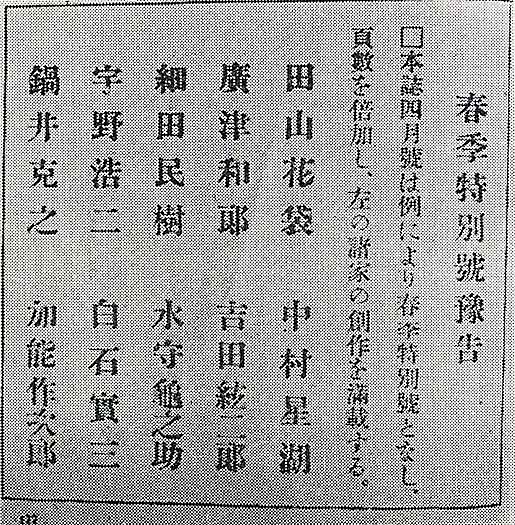 春季特別號豫告
□本誌四月號は例により春季特別號となし、
頁數を倍加し、左の諸家の創作を滿載する。
田山花袋　中村星湖
廣津和郎　吉田絃二郎
細田民樹　水守龜之助
宇野浩二　白石實三
鍋井克之　加能作次郎